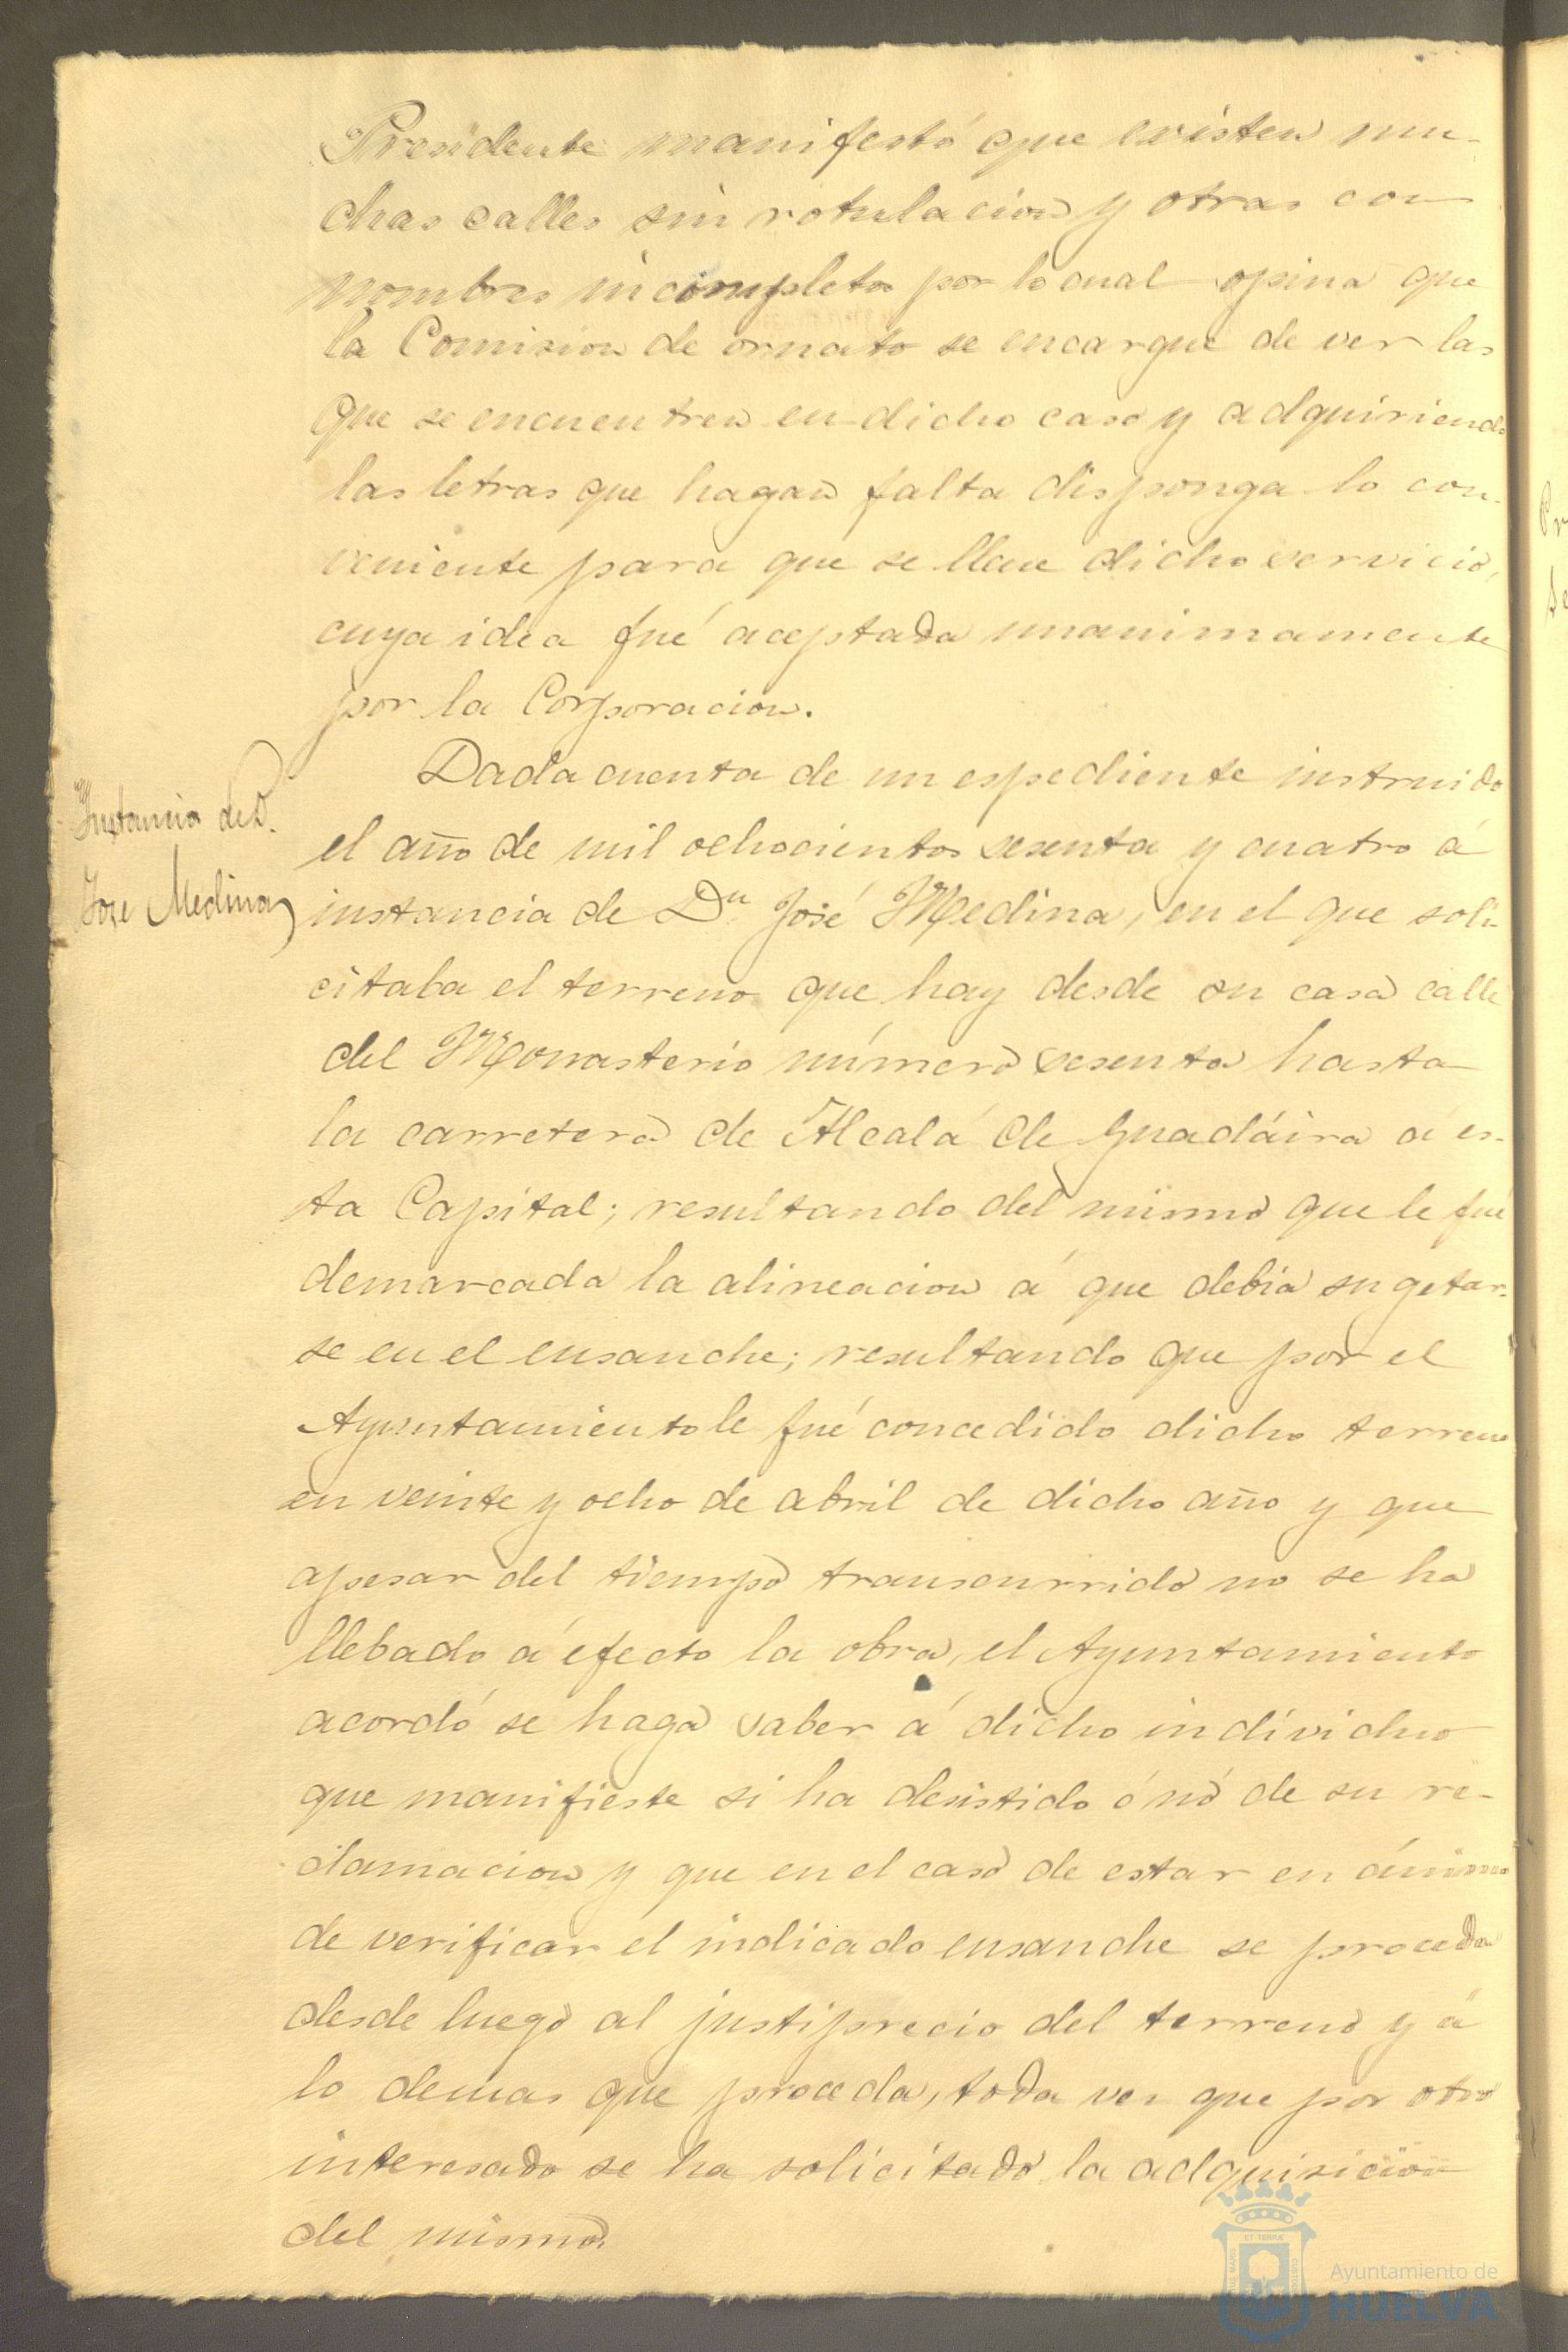 Presidente manifestó que existen mu-
chas calles sin rotulacion y otras con
nombres incompletos por lo cual opina que
la Comision de ornato se encargue de ver las
que se encuentren en dicho caso y adquiriendo
las letras que hagan falta disponga lo con-
veniente para que se llene dicho servicio,
cuya idea fué aceptada unanimamente
por la Corporacion.
Instancia de D.
Jose Medina
Dada cuenta de un espediente instruido
el año de mil ochocientos sesenta y cuatro á
instancia de Dn José Medina, en el que soli-
citaba el terreno que hay desde su casa calle
del Monasterio número sesenta hasta
la carretera de Alcalá de Guadáira á es-
ta Capital; resultando del mismo que le fué
demarcada la alineacion á que debia sugetar-
se en el ensanche; resultando que por el
Ayuntamiento le fué concedido dicho terreno
en veinte y ocho de abril de dicho año y que
apesar del tiempo transcurrido no se ha
llebado á efecto la obra, el Ayuntamiento
acordó se haga saber á dicho individuo
que manifieste si ha desistido ó nó de su re-
clamacion y que en el caso de estar en ánimo
de verificar el indicado ensanche se proceda
desde luego al justiprecio del terreno y á
lo demas que proceda, toda vez que por otro
interesado se ha solicitado la adquisicion
del mismo.
Ayuntamiento de
HUELVA